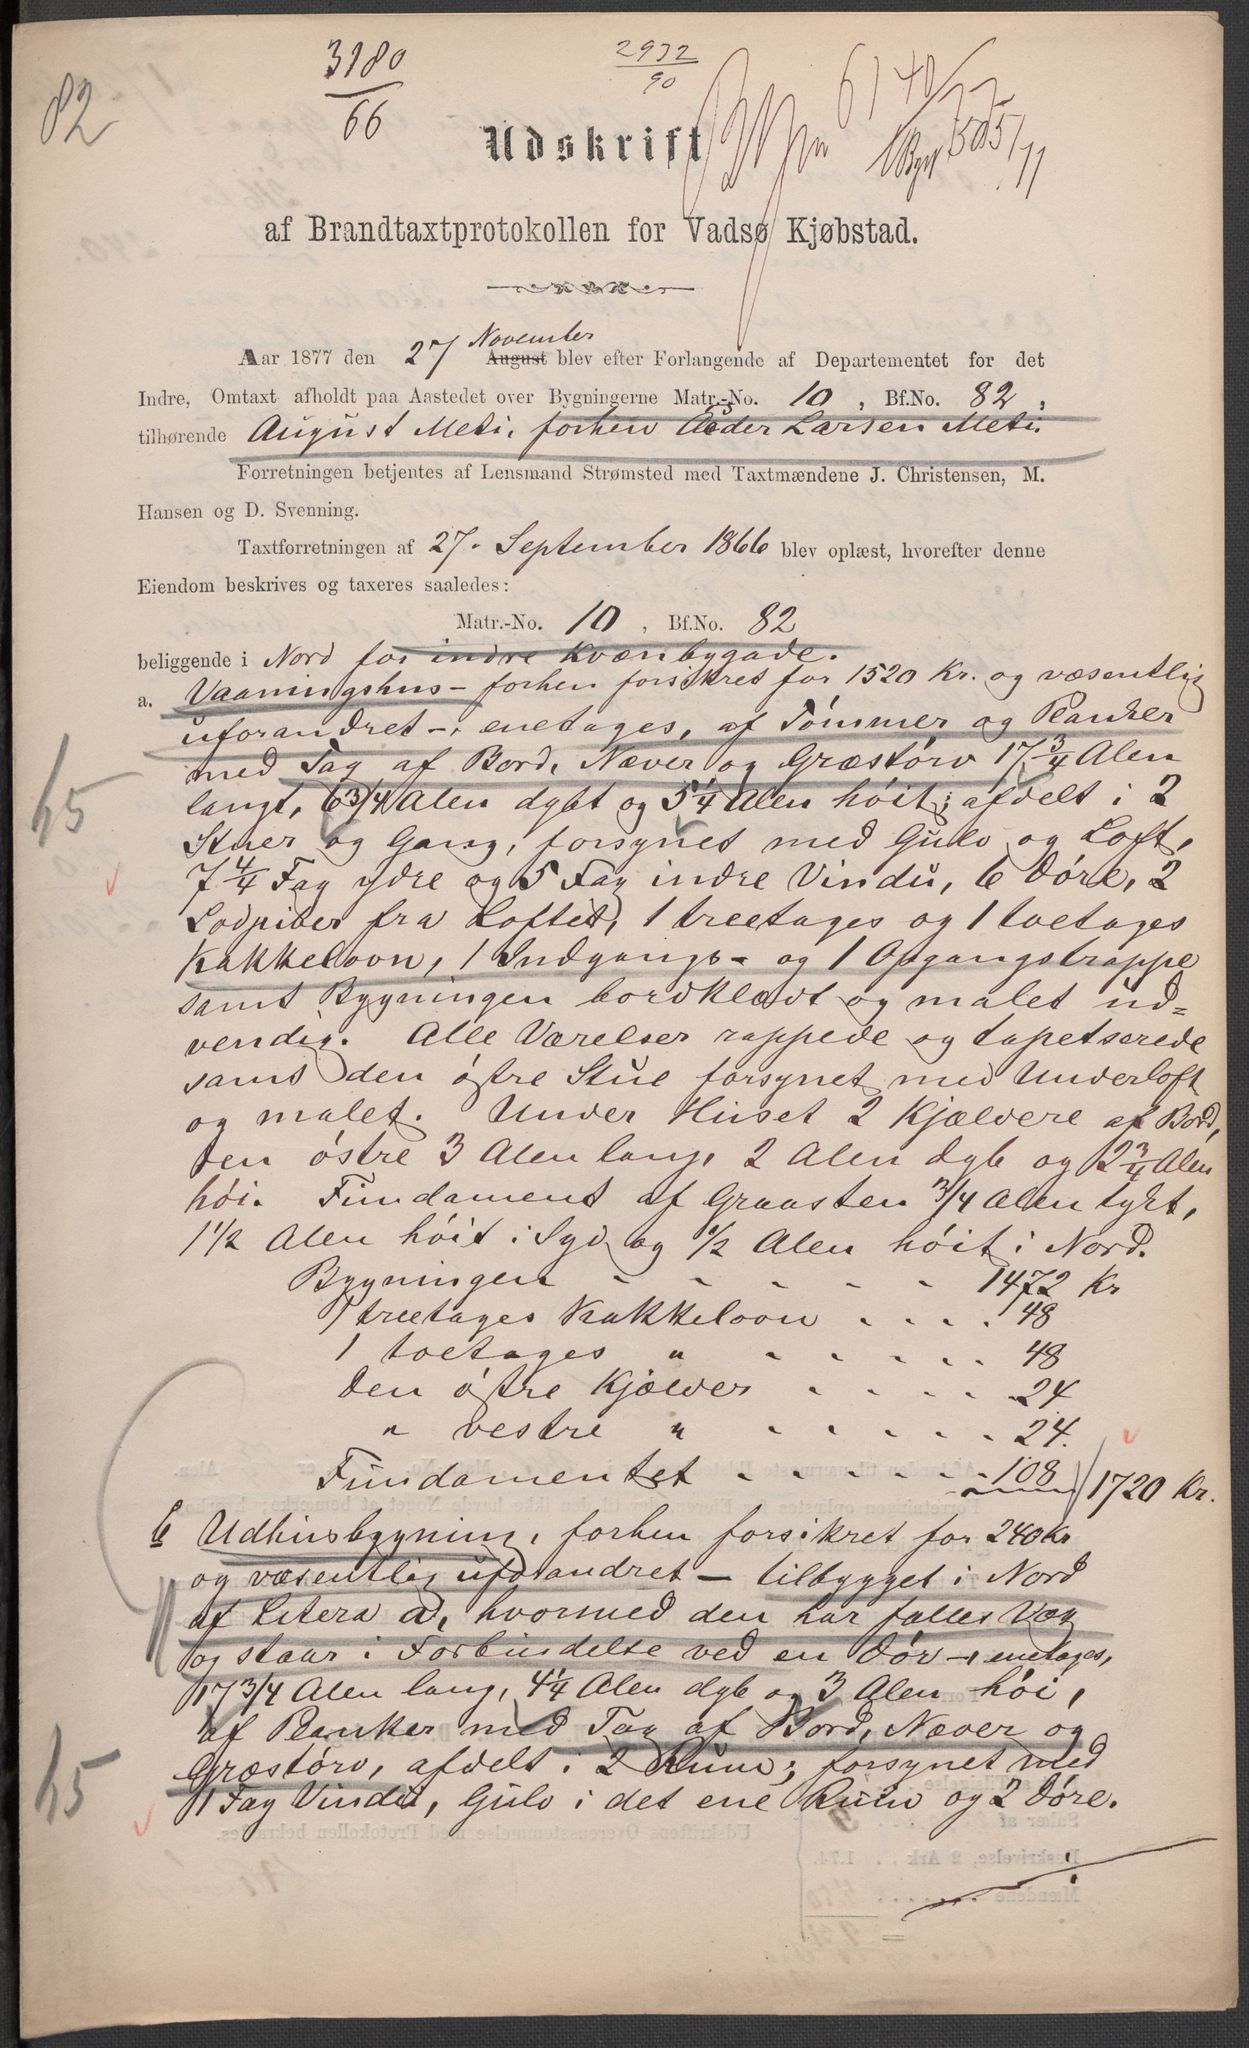 82
3180
66
2932
90
6140
Udskrift
5051/11
af Brandtaxtprotokollen for Vadsø Kjøbstad.
November
Aar 1877 den 27 August blev efter Forlangende af Departementet for det
Indre, Omtaxt afholdt paa Aastedet over Bygningerne Matr.-No. 10, Bf.No. 82,
tilhørende August Meti, forhen Peder Larsen Meti.
Forretningen betjentes af Lensmand Strømsted med Taxtmændene J. Christensen, M.
Hansen og D. Svenning.
Taxtforretningen af 27. September 1866 blev oplæst, hvorefter denne
Eiendom beskrives og taxeres saaledes:
Matr.-No. 10, Bf.No. 82
beliggende i Nord for indre Kvænbygade.
a. Vaaningshus – forhen forsikret for 1520 Kr. og væsentlig
uforandret –, enetages, af Tömmer og Planker
med Tag af Bord, Næver og Græstörv 17 3/4 Alen
langt, 6 3/4 Alen dybt og 5 1/4 Alen höit; afdelt i 2
Stuer og Gang, forsynet med Gulv og Loft,
7 4/4 Fag ydre og 5 Fag indre Vindu, 6 Döre, 2
Lodpiber fra Loftet, 1 treetages og 1 toetages
Kakkelovn, 1 Indgangs- og 1 Opgangstrappe
samt Bygningen bordklædt og malet ud-
vendig. Alle Værelser rappede og tapetserede
samt den östre Stue forsynet med Underloft
og malet. Under Huset 2 Kjældere af Bord,
den östre 3 Alen lang, 2 Alen dyb og 2 3/4 Alen
höi. Fundament af Graasten 3/4 Alen tykt,
1 1/2 Alen höit i Syd og 1/2 Alen höit i Nord.
Bygningen - - - - - - 1472 Kr
1 treetages Kakkelovn . . . . 48
1 toetages " - - - - - 48
den östre Kjelder . . . . 24
" vestre " - - - - - 24.
Fundamentet - - - - - - 108 / 1720 Kr.
b Udhusbygning, forhen forsikret for 240 Kr
og væsentlig uforandret – tilbygget i Nord
af Litera a, hvormed den har fælles Væg
og staar i Forbindelse ved en Dör –, enetages,
17 3/4 Alen lang, 4 1/4 Alen dyb og 3 Alen höi,
af Planker med Tag af Bord, Næver og
Græstörv, afdelt i 2 Rum; forsynet med
1 Fag Vindu, Gulv i det ene Rum og 2 Döre.